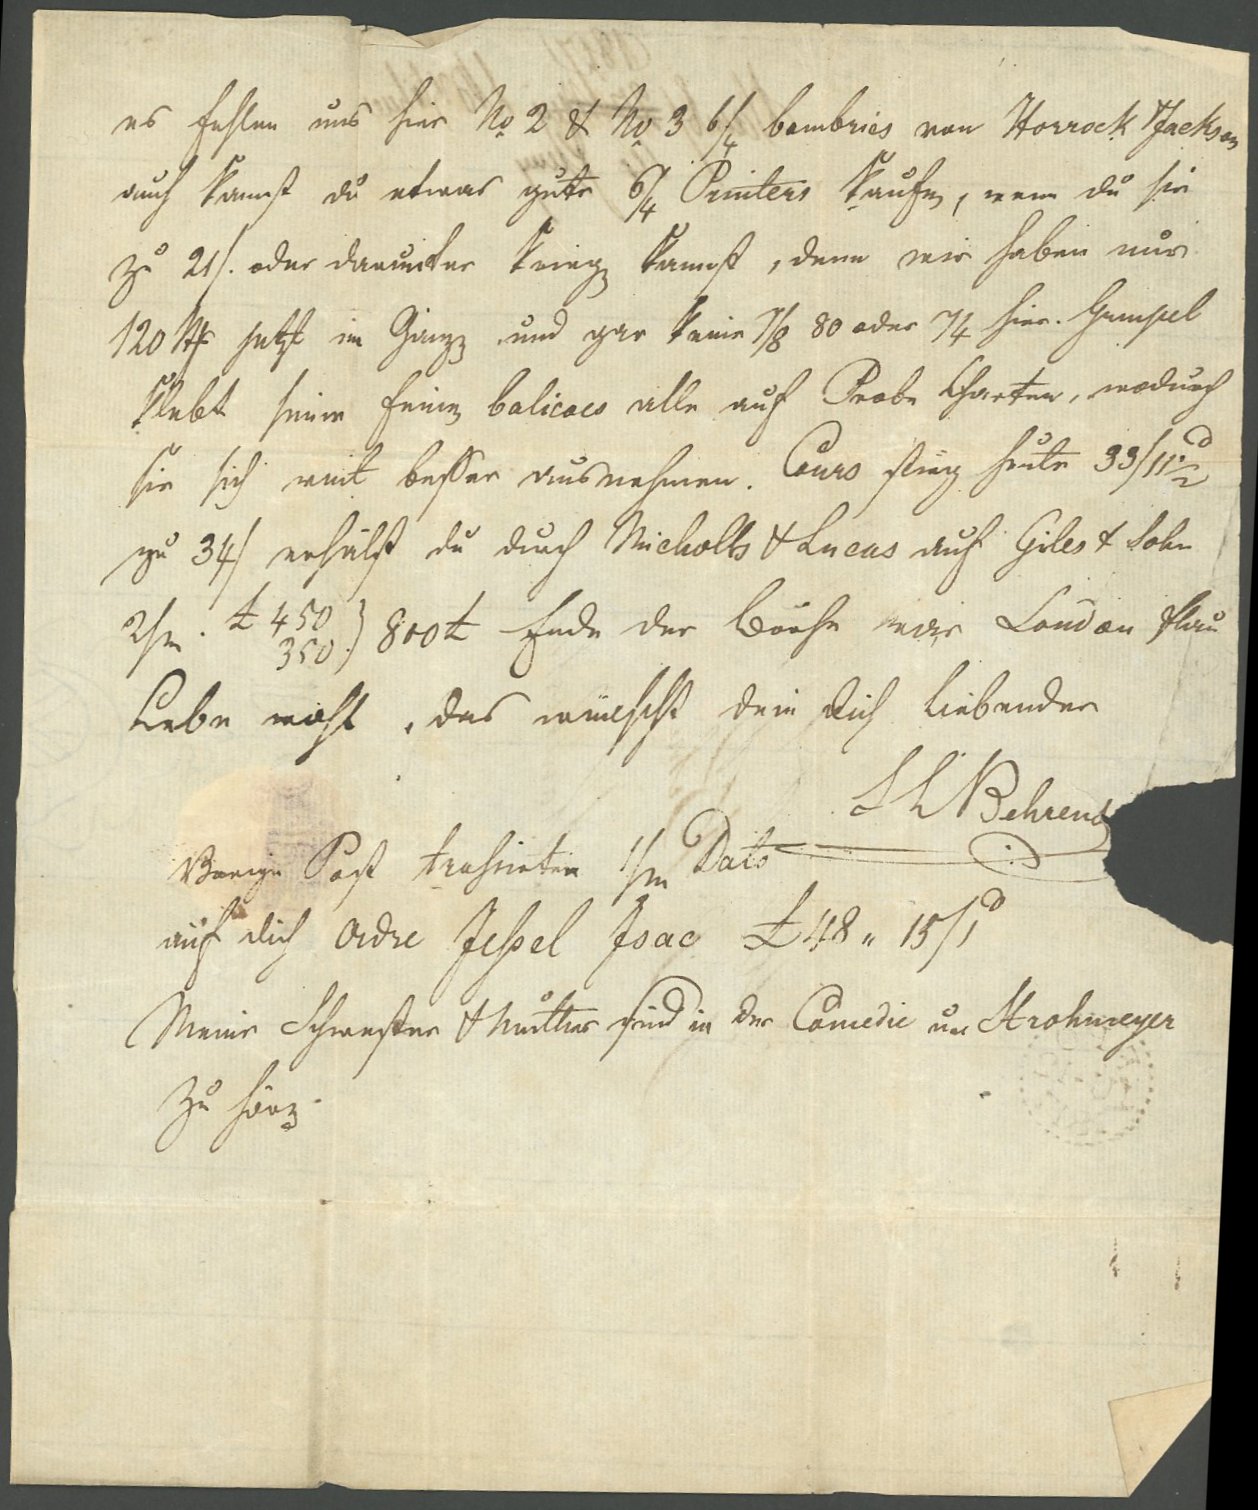 es fehlen uns hier No 2 & No 3 6/4 Cambrics von Horrock & Jackson
auch kanst du etwas gute 6/4 Printers kaufen, wenn du sie
zu 21/. oder darunter kriegen kannst, denn wir haben nur
120 Stk jetzt im Ganzen und gar keine 7/8 80 oder 7/4 hier. Gumpel
klebt seine feinen Calicoes alle auf Probe Charten, wodurch
sie sich weit besser ausnehmen. Cours stieg heute 33/11½ d
zu 34/ erhälst du durch Nicholls & Lucas auf Giles & Sohn
2/m. £ 450
350. } 800 £ Ende der Börse war London flau
Lebe wohl, das wünscht dein dich liebender
S L Behrens
Vorige Post trassirten 1/m Dato
auf dich Ordre Jessel Isac £ 48 " 15/1 d
Meine Schwester & Mutter sind in der Comedie um Strohmeyer
zu hören.